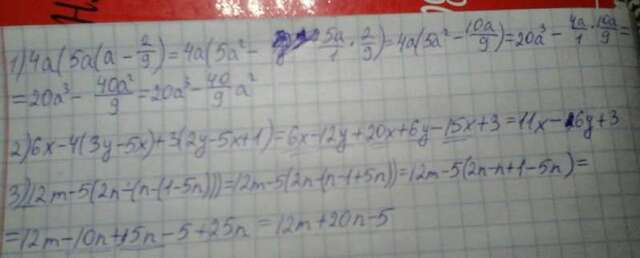 1) 4a(5a(a - 2/9) = 4a(5a² - 5a/1 · 2/9) = 4a(5a² - 10a/9) = 20a³ - 4a/1 · 10a/9 =
= 20a³ - 40a²/9 = 20a³ - 40/9 a²
2) 6x-4(3y-5x)+3(2y-5x+1)=6x-12y+20x+6y-15x+3=11x-6y+3
3) 12m-5(2n-(n-(1-5n)))=12m-5(2n-(n-1+5n))=12m-5(2n-n+1-5n)=
=12m-10n+15n-5+25n=12m+20n-5